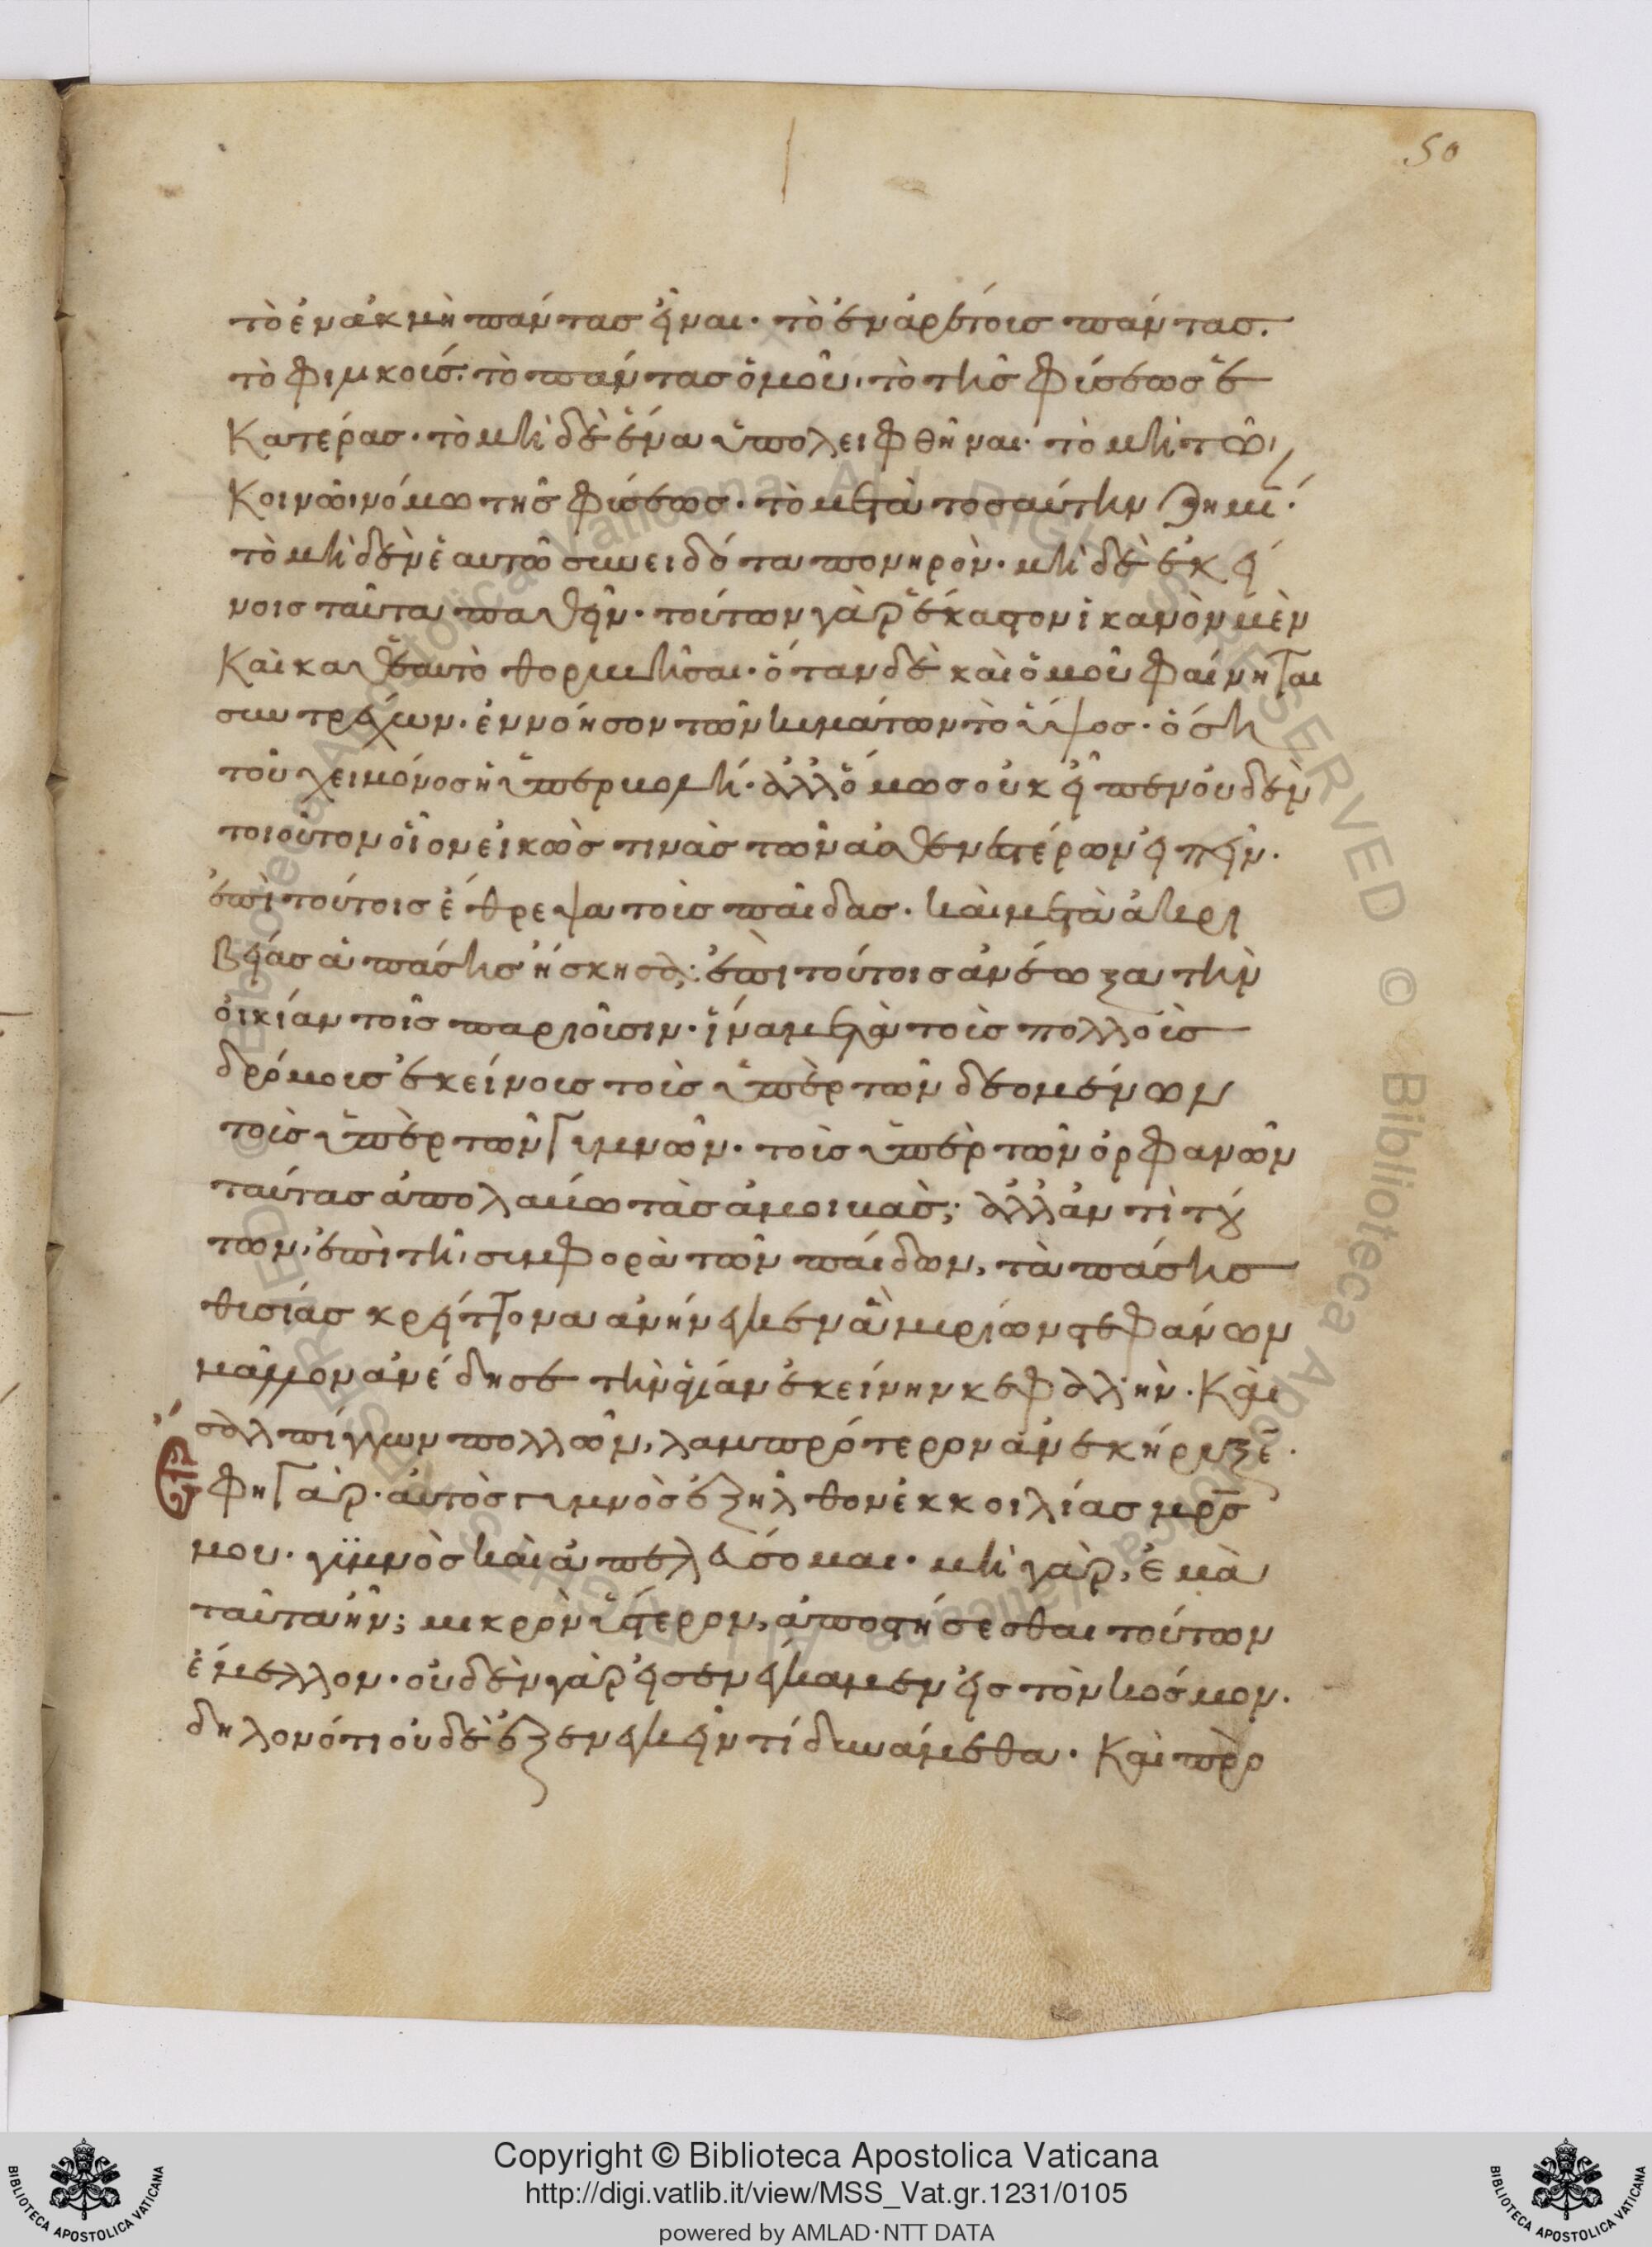 50
τὸ ἐν ἀκμὴ πάντας εἶναι· τὸ ἐναρέτοις πάντας.
τὸ φιμκοίς· τὸ πάντας ὁμοῦ· τὸ τῆς φύσεως ἑ
κατέρας· τὸ μὴ δὲ ἕνα ὑπολειφθῆναι· τὸ μὴ τῶι
κοινῶι νόμω τῆς φύσεως· τὸ μετὰ τοσαύτην ζημί·
τὸ μὴ δὲν ἑαυτῶ συνειδότα πονηρὸν· μὴ δὲ ἐκεί
νοις ταῦτα παθεῖν· τούτων γὰρ ἕκαστον ἱκανὸν μὲν
καὶ καθ' ἑαυτὸ θορυβῆσαι· ὅταν δὲ καὶ ὁμοῦ φαίνηται
συντρέχων· ἐννόησον τῶν κυμάτων τὸ ὕψος· ὅση
τοῦ χειμόνος ἡ ὑπερβολή· ἀλλ' ὅμως οὐκ εἶπεν οὐδὲν
τοιοῦτον οἷον εἰκὼς τινὰς τῶν ἀσθενεστέρων εἰπεῖν·
ἐπὶ τούτοις ἔθρεψα τοὶς παῖδας· καὶ μετὰ ἀκρι
βείας ἁπάσης ἤσκησα; ἐπὶ τούτοις ἀνέωξα τὴν
οἰκίαν τοῖς παριοῦσιν· ἵνα μετὰ τοὶς πολλοὶς
δρόμοις ἐκείνοις τοὶς ὑπὲρ τῶν δεομένων
τοὶς ὑπὲρ τῶν γυμνῶν· τοὶς ὑπὲρ τῶν ὀρφανῶν
ταύτας ἀπολαύω τὰς ἀμοιβὰς; ἀλλ' ἀντὶ τού
των, ἐπὶ τῆ συμφορὰ τῶν παίδων, τὰ πάσης
θυσίας κρείττονα ἀνήνεγκεν ἃ μυρίων στεφάνων
μᾶλλον ἀνέδησε τὴν ἁγίαν ἐκείνην κεφαλὴν· καὶ
σαλπίγγων πολλῶν, λαμπρότερον ἀνεκήρυξε·
φη γὰρ· αὐτὸς γυμνὸς ἐξῆλθον ἐκ κοιλίας μρς
μου· γυμνὸς καὶ ἀπελεύσομαι· μὴ γὰρ, ἐμὰ
ταῦτα ἦν; μικρὸν ὕστερον, ἀποστήσεσθαι τούτων
ἔμελλον· οὐδὲν γὰρ εἰσενέγκαμεν εἰς τὸν κόσμον.
δηλονότι οὐδὲ ἐξενεγκεῖν τί δυνάμεθα· καὶ πρὸ
Copyright © Biblioteca Apostolica Vaticana
http://digi.vatlib.it/view/MSS_Vat.gr.1231/0105
powered by AMLAD·NTT DATA
BIBLIOTECA APOSTOLICA VATICANA
BIBLIOTECA APOSTOLICA VATICANA